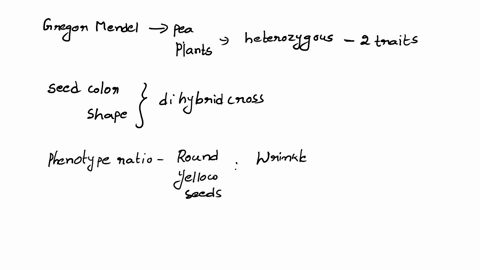 Gregor Mendel → pea plants → heterozygous - 2 traits
seed color shape } dihybrid cross
Phenotype ratio - Round yellow seeds : Wrinkle